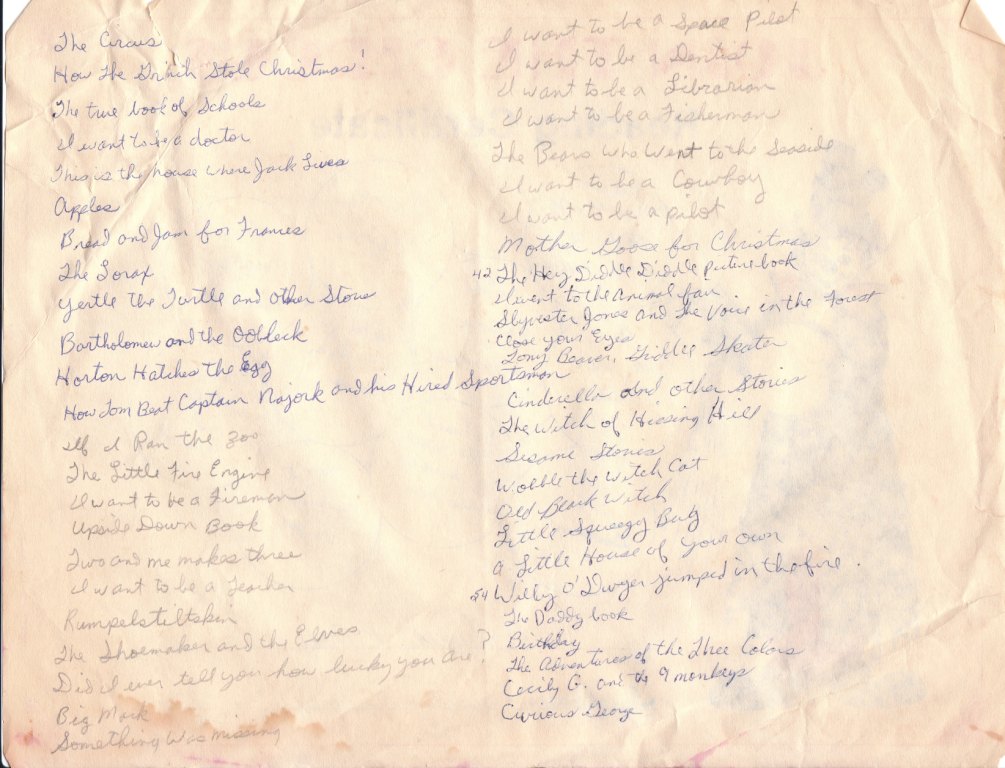 The Circus
How The Grinch Stole Christmas!
The true book of Schools
I want to be a doctor
This is the house where Jack Lives
Apples
Bread and Jam for Frances
The Lorax
Yertle The Turtle and other Stories
Bartholomew and the Oobleck
Horton Hatches the Egg
How Tom Beat Captain Najork and his Hired Sportsman
If I Ran the Zoo
The Little Fire Engine
I want to be a Fireman
Upside Down Book
Two and me makes three
I want to be a Teacher
Rumpelstiltskin
The Shoemaker and the Elves
Did I ever tell you how lucky you are?
Big Mark
Something Was missing
I want to be a Space Pilot
I want to be a Dentist
I want to be a Librarian
I want to be a Fisherman
The Bears who Went to the Seaside
I want to be a Cowboy
I want to be a pilot
Mother Goose for Christmas
42 The Hey Diddle Diddle picture book
I went to the animal fair
Slyvester Jones and The Voice in the Forest
Close your Eyes
Tony Beaver, Fiddle Skater
Cinderella and other Stories
The Witch of Hissing Hill
Sesame Stories
Wobble the Witch Cat
Old Black Witch
Little Squeegy Bug
A Little House of your own
54 Willy O'Dwyer jumped in the fire.
The Daddy book
Birthday
The Adventures of the Three Colors
Cecily G. and the 9 monkeys
Curious George